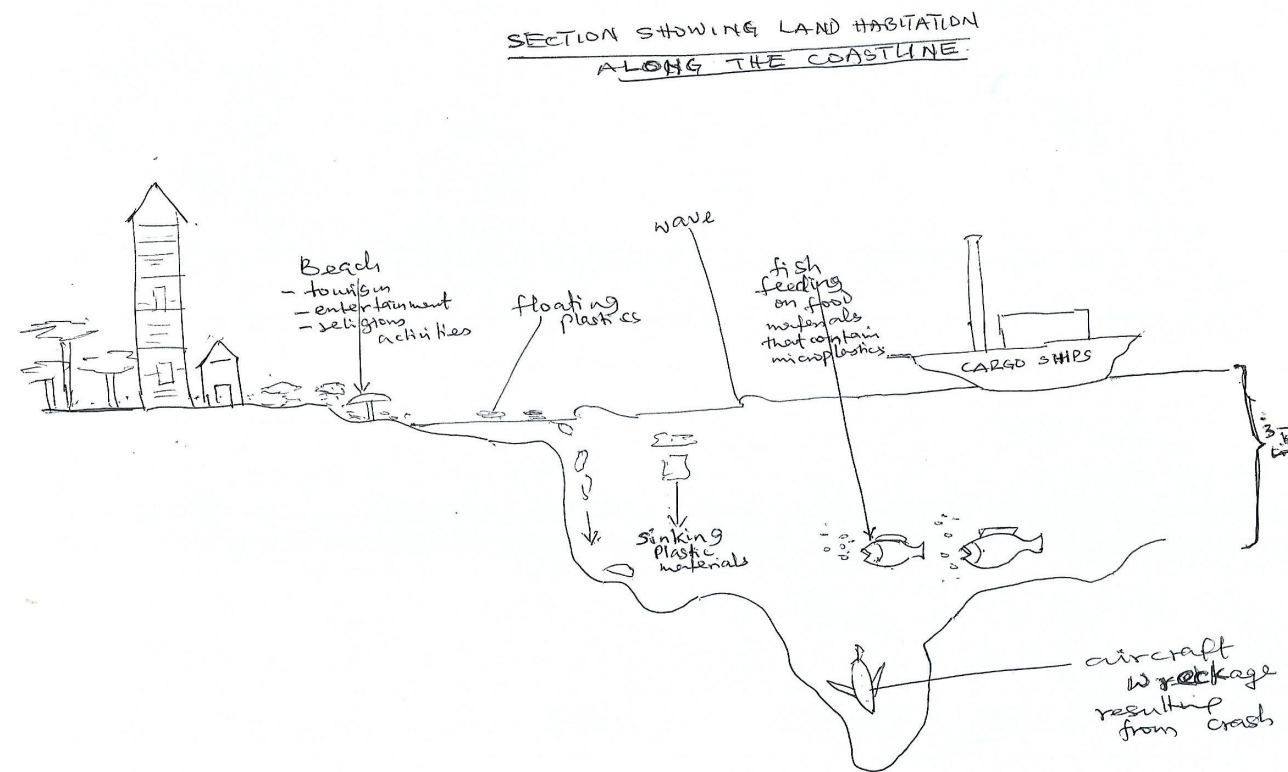 SECTION SHOWING LAND HABITATION
ALONG THE COASTLINE.
Beach
- tourism
- entertainment
- religious
activities
floating
plastics
wave
fish
feeding
on food
materials
that contain
microplastics
CARGO SHIPS
sinking
plastic
materials
aircraft
wreckage
resulting
from crash